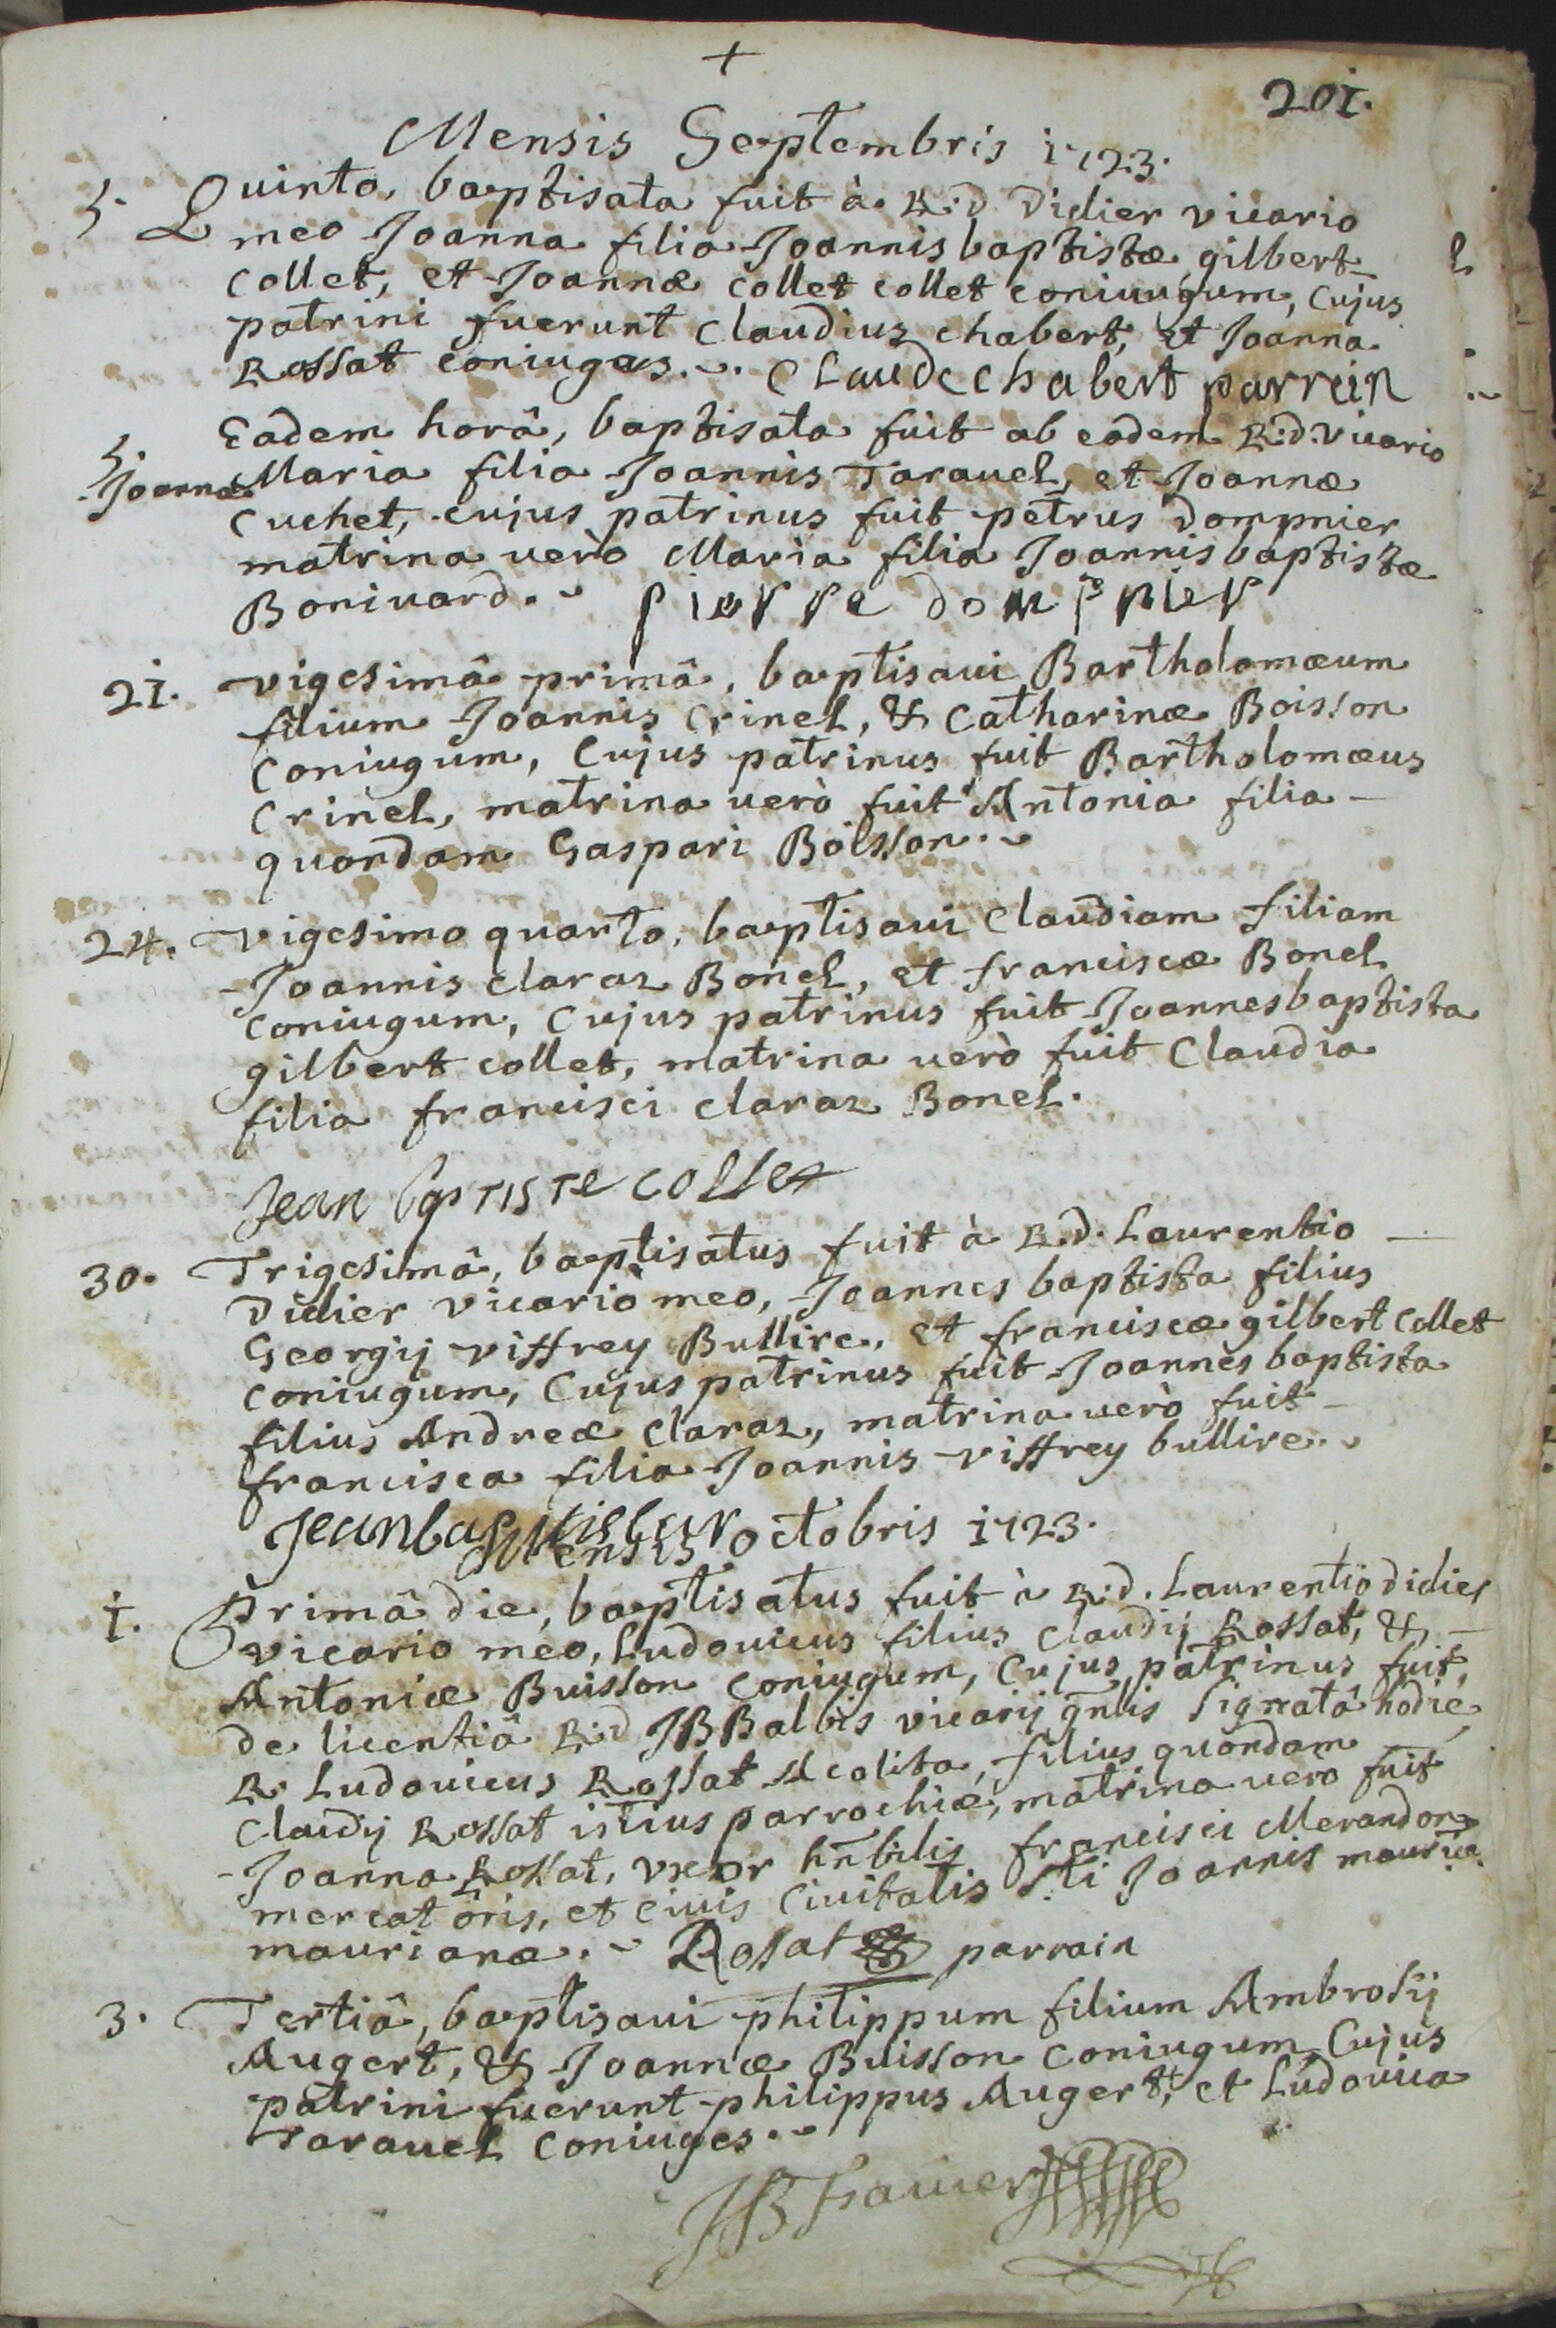 +
201.
Mensis Septembris 1723.
5. Quinto, baptisata fuit à R.d Didier vicario
meo Joanna filia Joannis baptistæ gilbert
collet, et Joannæ collet collet coniungum, Cujus
patrini fuerunt Claudius chabert, et Joanna
Rossat coniuges. Claude chabert parrein
5. Eadem horâ, baptisata fuit ab eodem R.d vicario
Joanna Maria filia Joannis Tarauel, et Joannæ
Cuchet, cujus patrinus fuit petrus dompnier
matrina verò Maria filia Joannis baptistæ
Boniuard. pierre dompnier
21. vigesimâ primâ, baptisaui Bartholomæum
filium Joannis Crinel, & Catharinæ Boisson
Coniugum, Cujus patrinus fuit Bartholomæus
Crinel, matrina verò fuit Antonia filia
quondam Gaspari Boisson.
24. Vigesimo quarto, baptisaui Claudiam filiam
Joannis claraz Bonel, et franciscæ Bonel
coniugum, Cujus patrinus fuit Joannes baptista
gilbert collet, matrina verò fuit Claudia
filia francisci claraz Bonel.
Jean bptiste collet
30. Trigesimâ, baptisatus fuit à R.d. Laurentio
Didier vicario meo, Joannes baptista filius
Georgij viffrey Bullire, et franciscæ gilbert collet
coniugum, Cujus patrinus fuit Joannes baptista
filius Andreæ claraz, matrina verò fuit
francisca filia Joannis viffrey bullire.
Jean
Mensis octobris 1723.
1. Primâ die, baptisatus fuit à R.d. Laurentio didier
vicario meo, Ludouicus filius claudij Rossat, &
Antoniæ Buisson coniugum, Cujus patrinus fuit,
de licentiâ R.d JB Balbis vicarij gnlis signatâ hodie
R. Ludouicus Rossat Acolita, filius quondam
Claudij Rossat istius parrochiæ, matrina verò fuit
Joanna Rossat, vxor hnbilis francisci Merandon
mercatoris, et ciuis Ciuitatis Sti Joannis
maurianæ. Rosat parrain
3. Tertiâ, baptisaui philippum filium Ambrosij
Augert, & Joannæ Buisson coniugum Cujus
patrini fuerunt philippus Augert, et Ludouica
Tarauel Coniuges.